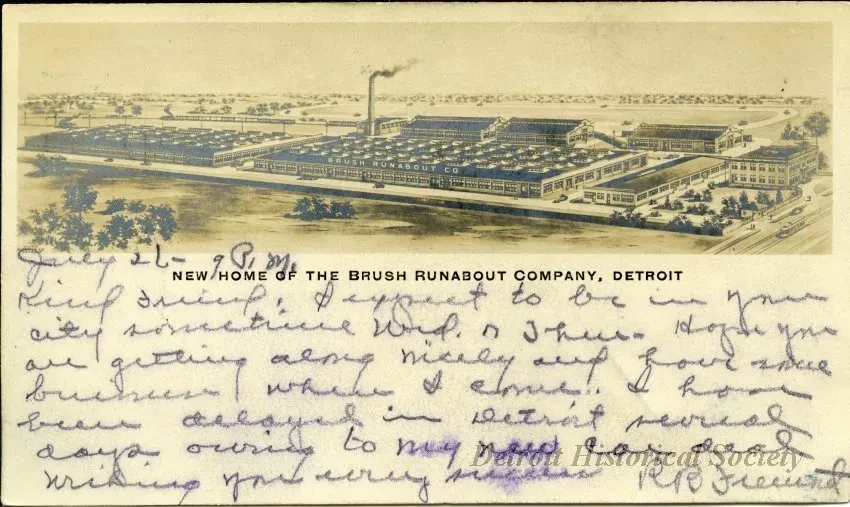 BRUSH RUNABOUT CO
July 26 - 9 P.M.
NEW HOME OF THE BRUSH RUNABOUT COMPANY, DETROIT
Kind Friend, I expect to be in your
city sometime Wed. or Thur - Hope you
are getting along nicely and have some
business when I come. I have
been delayed in Detroit several
days owing to my new car deal
wishing you every success R B
Detroit Historical Society